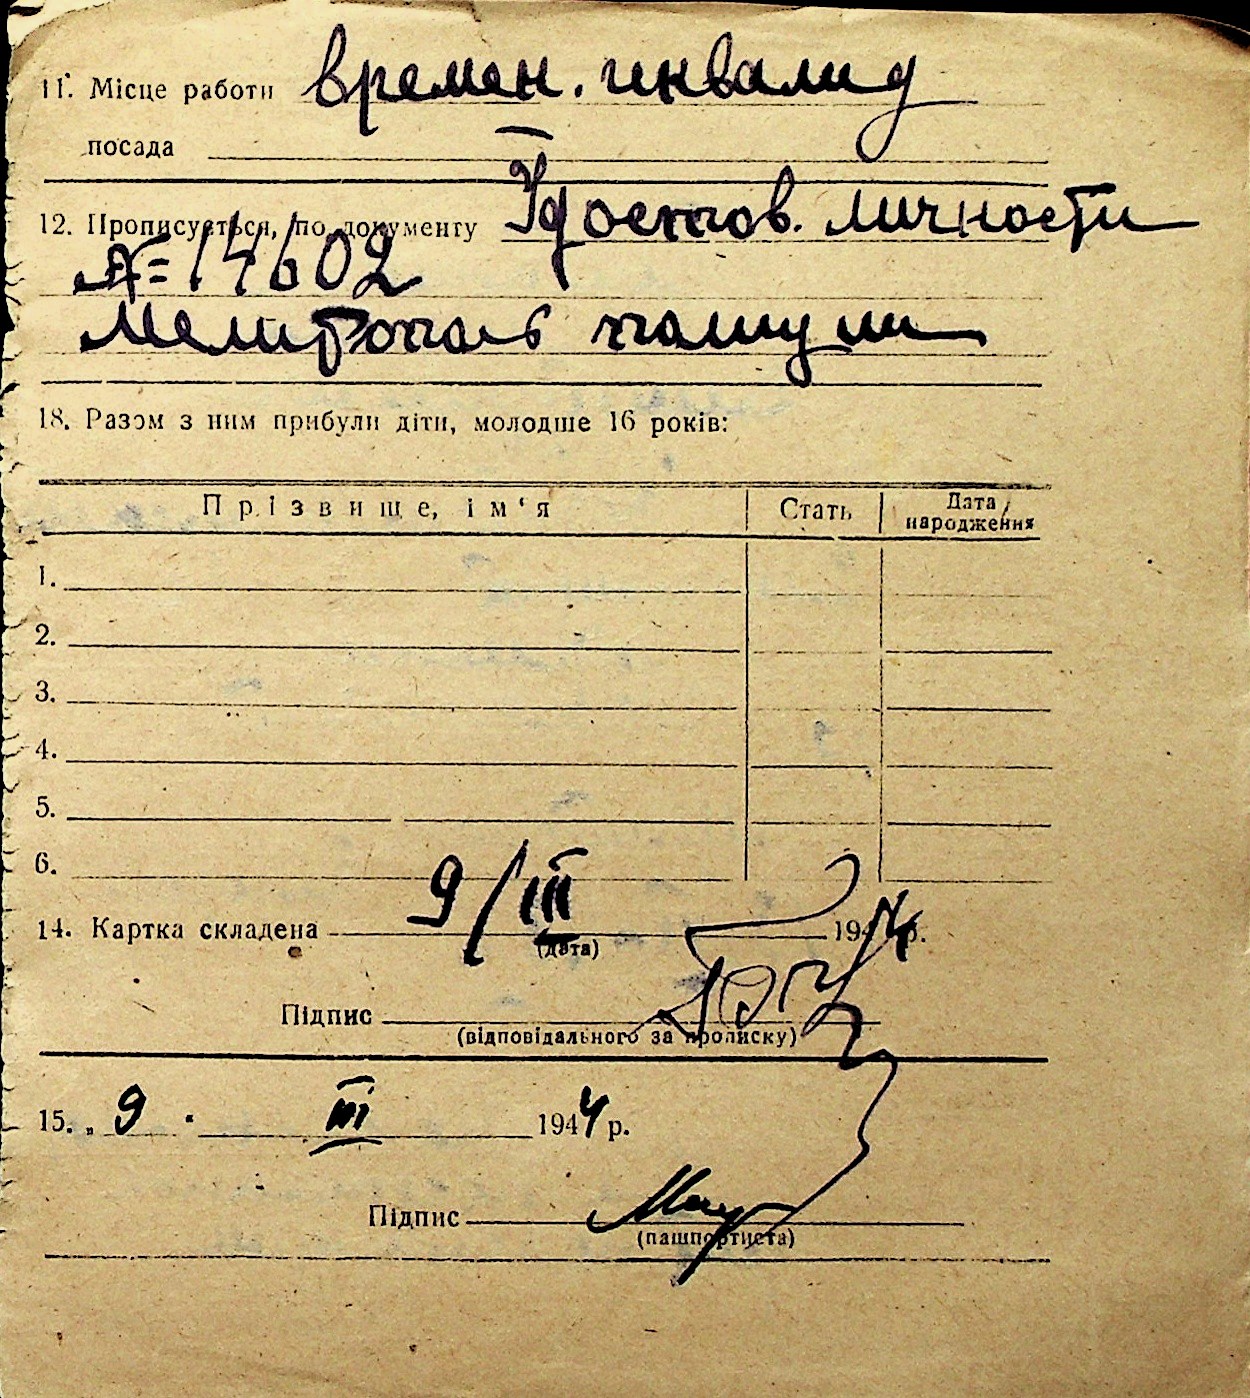 11. Місце работи времен. инвалид
посада
12. Прописується, по документу Удостов. личности
№ 14602
Мелитополь
18. Разом з ним прибули діти, молодше 16 років:
Прізвище, ім‘я Стать Дата народження
1.
2.
3.
4.
5.
6.
14. Картка складена 9/III 1944 р.
(дата)
Підпис
(відповідального за прописку)
15. „ 9 " III 1944 р.
Підпис
(пашпортиста)